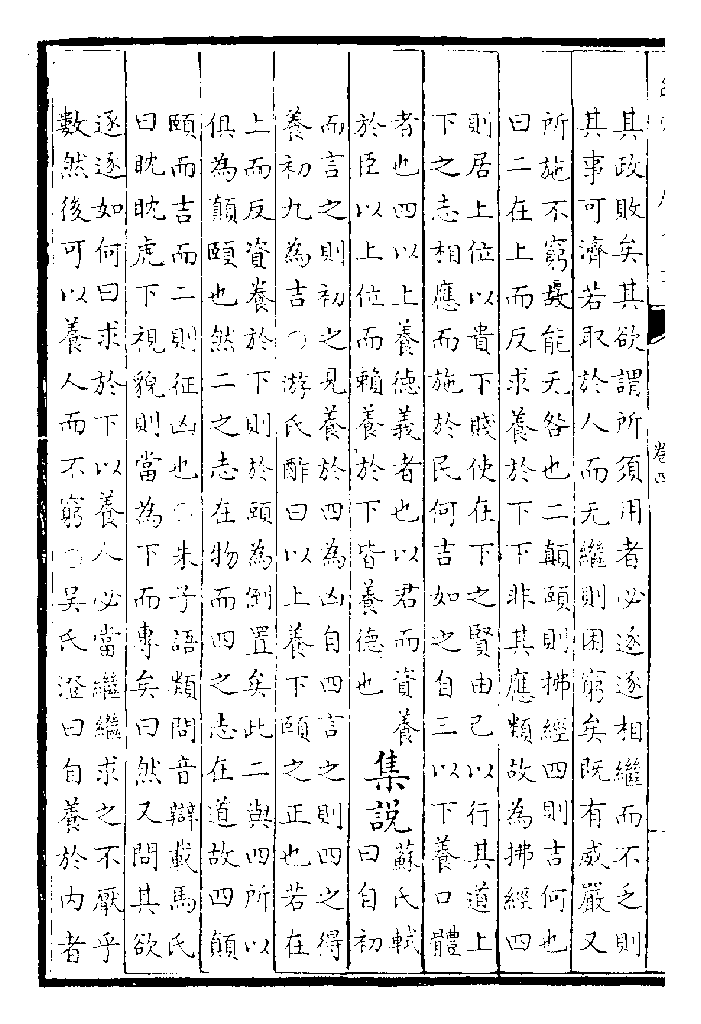 其政敗矣其欲謂所須用者必逐逐相繼而不乏則
其事可濟若取於人而无繼則困窮矣既有威嚴又
所施不窮故能无咎也二顛頤則拂經四則吉何也
曰二在上而反求養於下下非其應類故為拂經四
則居上位以貴下賤使在下之賢由己以行其道上
下之志相應而施於民何吉如之自三以下養口體
者也四以上養德義者也以君而資養
於臣以上位而賴養於下皆養德也
集説
蘇氏軾
曰自初
而言之則初之見養於四為凶自四言之則四之得
養初九為吉○游氏酢曰以上養下頤之正也若在
上而反資養於下則於頤為倒置矣此二與四所以
俱為顛頤也然二之志在物而四之志在道故四顛
頤而吉而二則征凶也○朱子語類問音辯載馬氏
曰眈眈虎下視貌則當為下而專矣曰然又問其欲
逐逐如何曰求於下以養人必當繼繼求之不厭乎
數然後可以養人而不窮○吳氏澄曰自養於内者
卷四